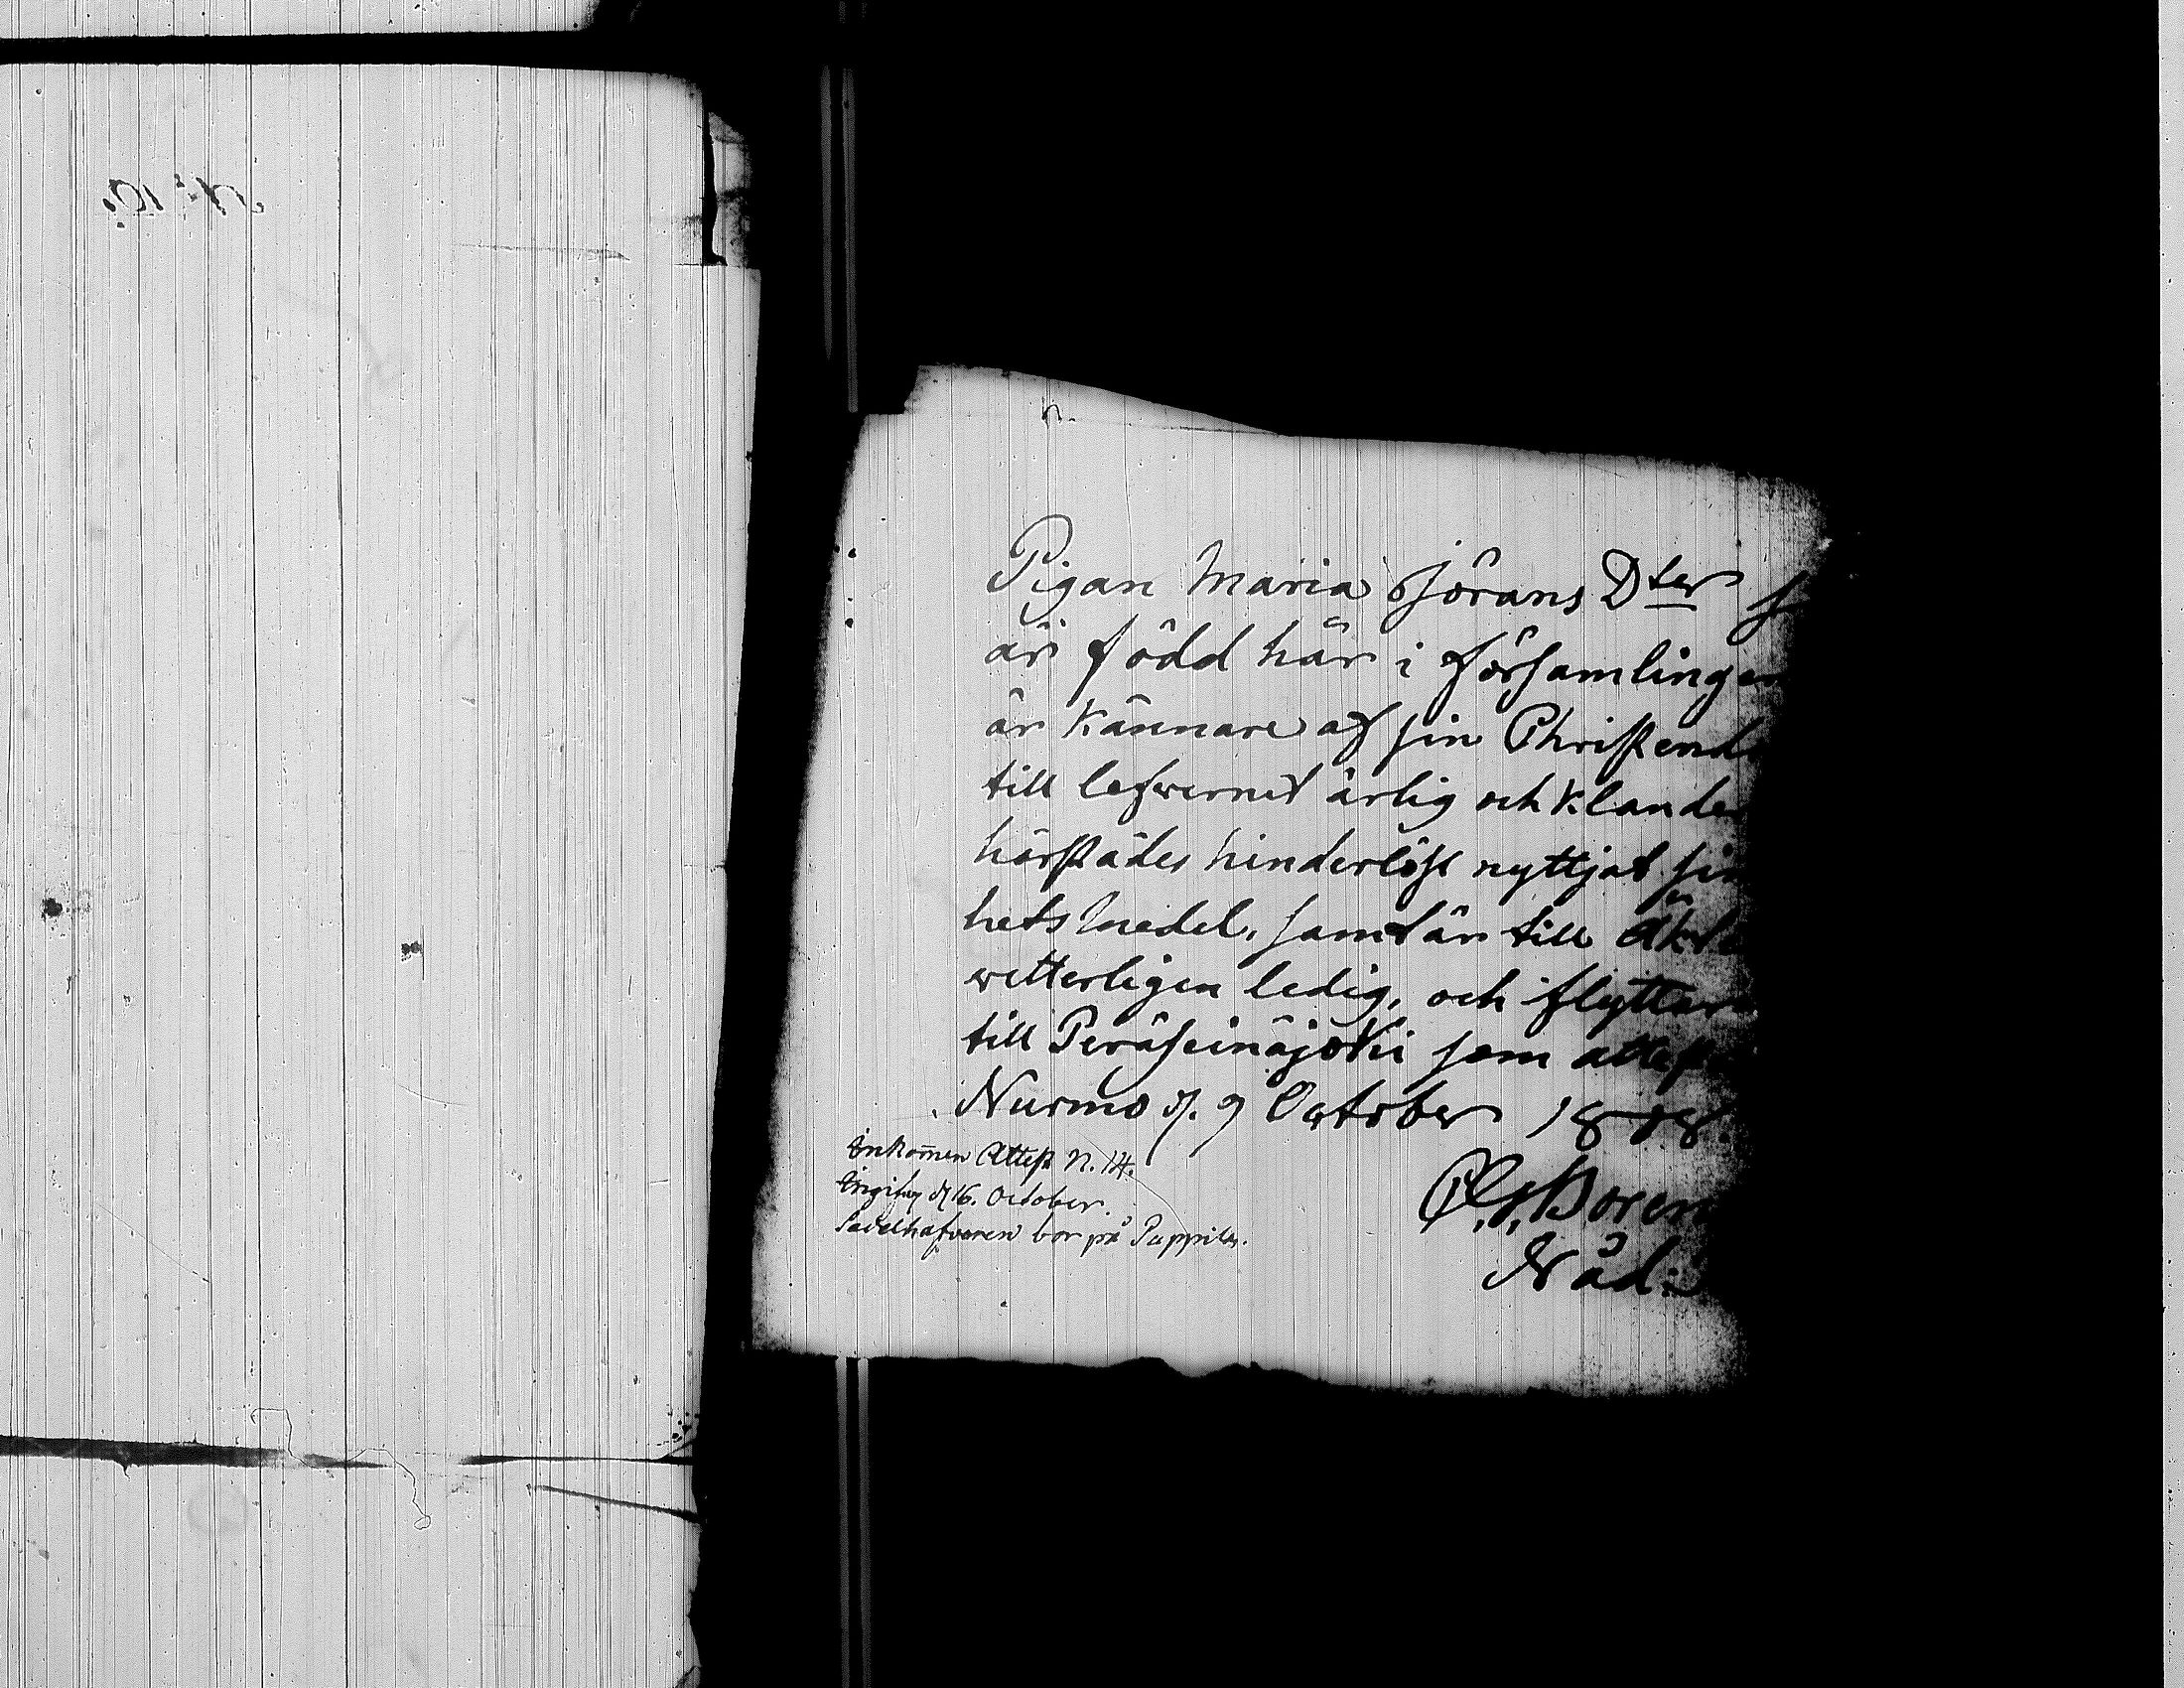 N: 10.
Pigan Maria Jörans Dter
är född här i församlingen
är kännare af sin Christend
till lefvernet ärlig och klander
härstädes hinderlöst nyttjat sin
hets medel, samt är till Äkt
vetterligen ledig, och flyttar
till Peräseinäjoki som attest
Nurmo d. 9 October 18
Inkommen Attest N. 14.
Ingifvy d 16. October.
bor på Pappila.
Boren
Nåd: